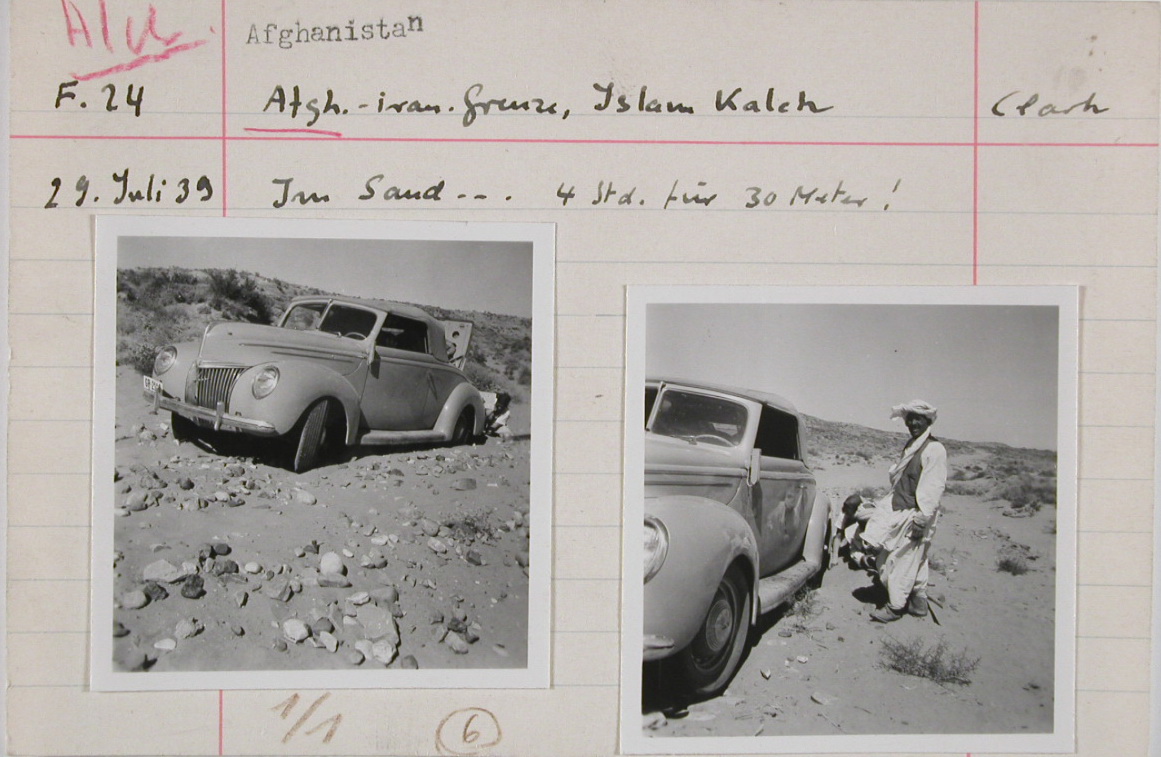 Afgh.
Afghanistan
F. 24 Afgh.-iran. Grenze, Islam Kaleh Clark
29. Juli 39 Im Sand --. 4 Std. für 30 Meter!
1/1 6